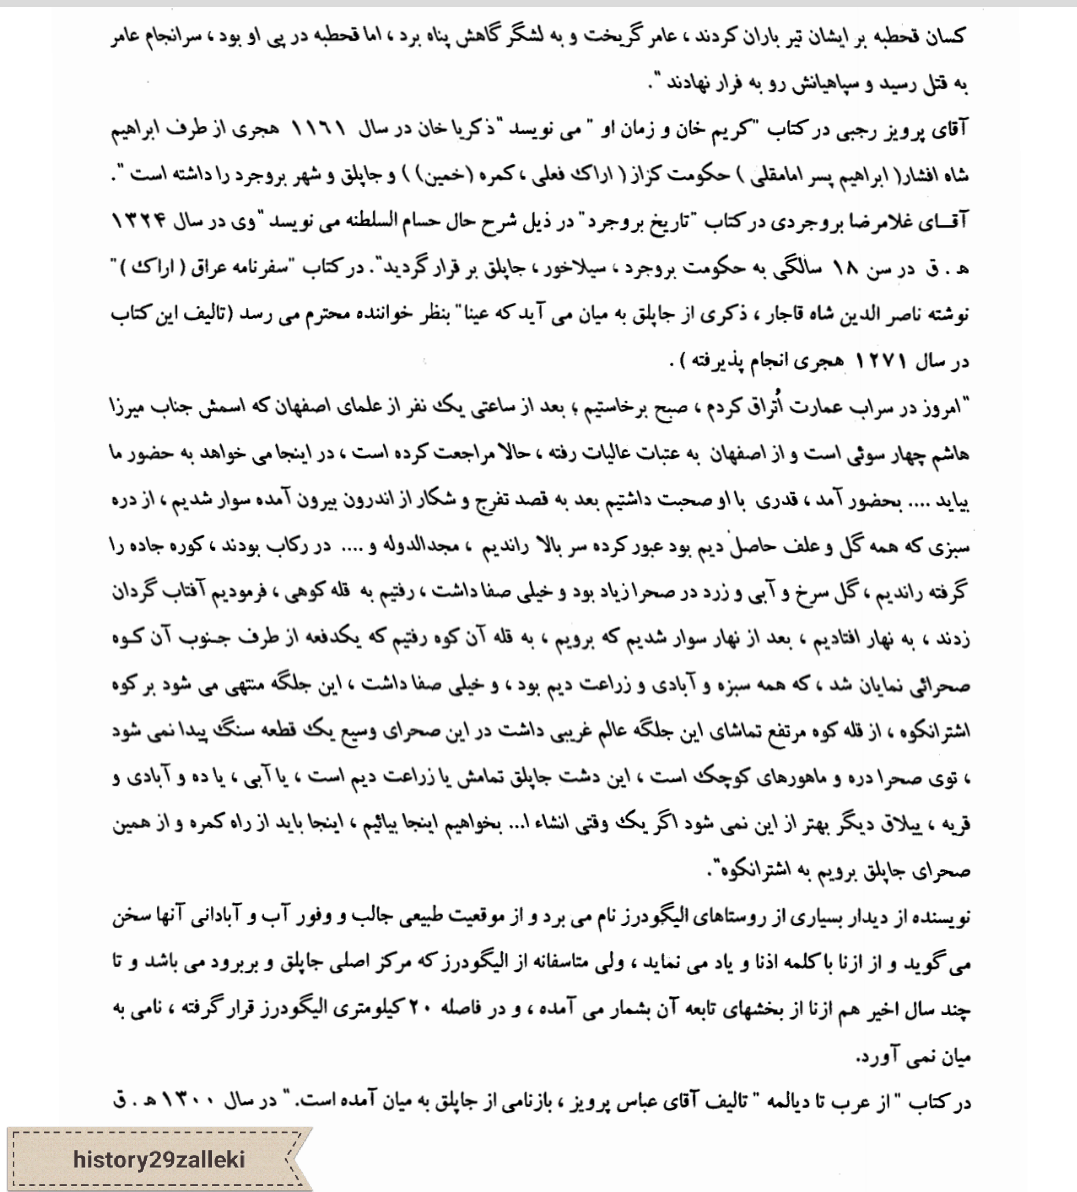 کسان قحطبه بر ایشان تیر باران کردند ، عامر گریخت و به لشگر گاهش پناه برد ، اما قحطبه در پی او بود ، سرانجام عامر
به قتل رسید و سپاهیانش رو به فرار نهادند ".
آقای پرویز رجبی در کتاب "کریم خان و زمان او " می نویسد "ذکریا خان در سال ۱۱۶۱ هجری از طرف ابراهیم
شاه افشار( ابراهیم پسر امامقلی ) حکومت کزاز ( اراک فعلی ، کمره (خمین) ) و جاپلق و شهر بروجرد را داشته است ".
آقـای غلامرضا بروجردی در کتاب "تاریخ بروجرد" در ذیل شرح حال حسام السلطنه می نویسد "وی در سال ۱۳۲۴
ه . ق در سن ۱۸ سالگی به حکومت بروجرد ، سیلاخور ، جاپلق بر قرار گردید". در کتاب "سفرنامه عراق ( اراک )"
نوشته ناصر الدین شاه قاجار ، ذکری از جاپلق به میان می آید که عینا" بنظر خواننده محترم می رسد (تالیف این کتاب
در سال ۱۲۷۱ هجری انجام پذیرفته ) .
"امروز در سراب عمارت اُتراق کردم ، صبح برخاستیم ؛ بعد از ساعتی یک نفر از علمای اصفهان که اسمش جناب میرزا
هاشم چهار سوئی است و از اصفهان به عتبات عالیات رفته ، حالا مراجعت کرده است ، در اینجا می خواهد به حضور ما
بیاید .... بحضور آمد ، قدری با او صحبت داشتیم بعد به قصد تفرج و شکار از اندرون بیرون آمده سوار شدیم ، از دره
سبزی که همه گل و علف حاصل دیم بود عبور کرده سر بالا راندیم ، مجدالدوله و .... در رکاب بودند ، کوره جاده را
گرفته راندیم ، گل سرخ و آبی و زرد در صحرا زیاد بود و خیلی صفا داشت ، رفتیم به قله کوهی ، فرمودیم آفتاب گردان
زدند ، به نهار افتادیم ، بعد از نهار سوار شدیم که برویم ، به قله آن کوه رفتیم که یکدفعه از طرف جنوب آن کـوه
صحرائی نمایان شد ، که همه سبزه و آبادی و زراعت دیم بود ، و خیلی صفا داشت ، این جلگه منتهی می شود بر کوه
اشترانکوه ، از قله کوه مرتفع تماشای این جلگه عالم غریبی داشت در این صحرای وسیع یک قطعه سنگ پیدا نمی شود
، توی صحرا دره و ماهورهای کوچک است ، این دشت جاپلق تمامش یا زراعت دیم است ، یا آبی ، یا ده و آبادی و
قریه ، ییلاق دیگر بهتر از این نمی شود اگر یک وقتی انشاء ا... بخواهیم اینجا بیائیم ، اینجا باید از راه کمره و از همین
صحرای جاپلق برویم به اشترانکوه".
نویسنده از دیدار بسیاری از روستاهای الیگودرز نام می برد و از موقعیت طبیعی جالب و وفور آب و آبادانی آنها سخن
می گوید و از ازنا با کلمه اذنا و یاد می نماید ، ولی متاسفانه از الیگودرز که مرکز اصلی جاپلق و بربرود می باشد و تا
چند سال اخیر هم ازنا از بخشهای تابعه آن بشمار می آمده ، و در فاصله ۲۰ کیلومتری الیگودرز قرار گرفته ، نامی به
میان نمی آورد.
در کتاب " از عرب تا دیالمه " تالیف آقای عباس پرویز ، بازنامی از جاپلق به میان آمده است. " در سال ۱۳۰۰ ه . ق
history29zalleki